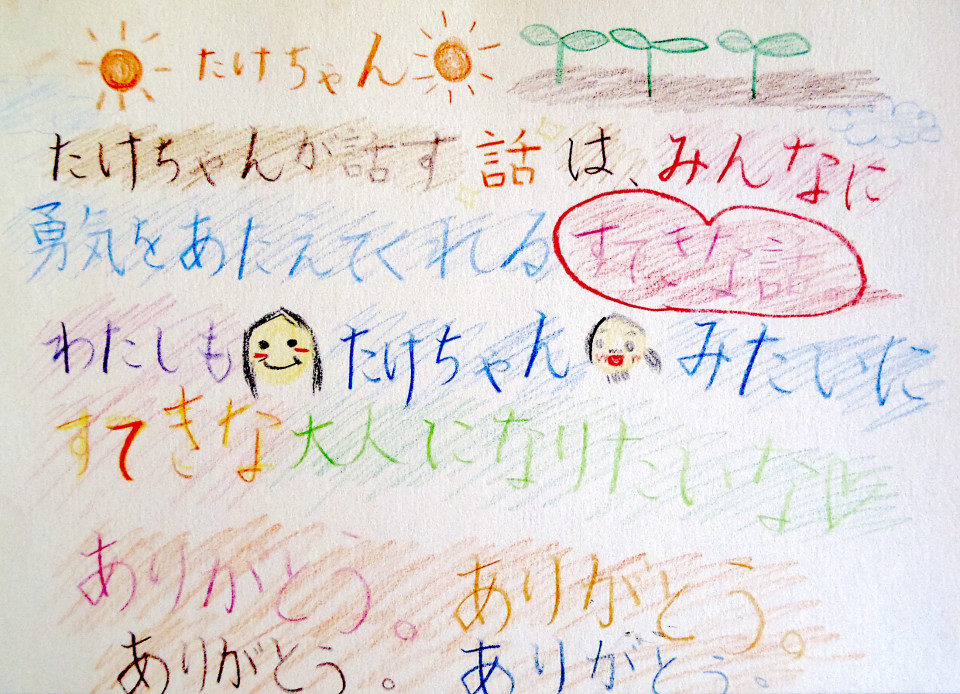 たけちゃん
たけちゃんが話す話は、みんなに
勇気をあたえてくれるすてきな話。
わたしもたけちゃんみたいに
すてきな大人になりたいな
ありがとう。ありがとう。
ありがとう。ありがとう。